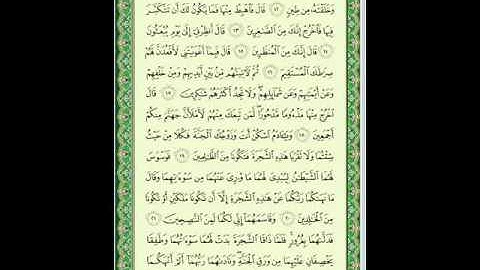 وَخَلَقْتَهُۥ مِن طِينٍ ١٢ قَالَ فَٱهْبِطْ مِنْهَا فَمَا يَكُونُ لَكَ أَن تَتَكَبَّرَ
فِيهَا فَٱخْرُجْ إِنَّكَ مِنَ ٱلصَّٰغِرِينَ ١٣ قَالَ أَنظِرْنِىٓ إِلَىٰ يَوْمِ يُبْعَثُونَ
١٤ قَالَ إِنَّكَ مِنَ ٱلْمُنظَرِينَ ١٥ قَالَ فَبِمَآ أَغْوَيْتَنِى لَأَقْعُدَنَّ لَهُمْ
صِرَٰطَكَ ٱلْمُسْتَقِيمَ ١٦ ثُمَّ لَءَاتِيَنَّهُم مِّنۢ بَيْنِ أَيْدِيهِمْ وَمِنْ خَلْفِهِمْ
وَعَنْ أَيْمَٰنِهِمْ وَعَن شَمَآئِلِهِمْ وَلَا تَجِدُ أَكْثَرَهُمْ شَٰكِرِينَ ١٧ قَالَ
ٱخْرُجْ مِنْهَا مَذْءُومًا مَّدْحُورًا لَّمَن تَبِعَكَ مِنْهُمْ لَأَمْلَأَنَّ جَهَنَّمَ مِنكُمْ
أَجْمَعِينَ ١٨ وَيَٰٓـَٔادَمُ ٱسْكُنْ أَنتَ وَزَوْجُكَ ٱلْجَنَّةَ فَكُلَا مِنْ حَيْثُ
شِئْتُمَا وَلَا تَقْرَبَا هَٰذِهِ ٱلشَّجَرَةَ فَتَكُونَا مِنَ ٱلظَّٰلِمِينَ ١٩ فَوَسْوَسَ
لَهُمَا ٱلشَّيْطَٰنُ لِيُبْدِىَ لَهُمَا مَا وُۥرِىَ عَنْهُمَا مِن سَوْءَٰتِهِمَا وَقَالَ
مَا نَهَىٰكُمَا رَبُّكُمَا عَنْ هَٰذِهِ ٱلشَّجَرَةِ إِلَّآ أَن تَكُونَا مَلَكَيْنِ أَوْ تَكُونَا
مِنَ ٱلْخَٰلِدِينَ ٢٠ وَقَاسَمَهُمَآ إِنِّى لَكُمَا لَمِنَ ٱلنَّٰصِحِينَ ٢١
فَدَلَّىٰهُمَا بِغُرُورٍ فَلَمَّا ذَاقَا ٱلشَّجَرَةَ بَدَتْ لَهُمَا سَوْءَٰتُهُمَا وَطَفِقَا
يَخْصِفَانِ عَلَيْهِمَا مِن وَرَقِ ٱلْجَنَّةِ وَنَادَىٰهُمَا رَبُّهُمَآ أَلَمْ أَنْهَكُمَا